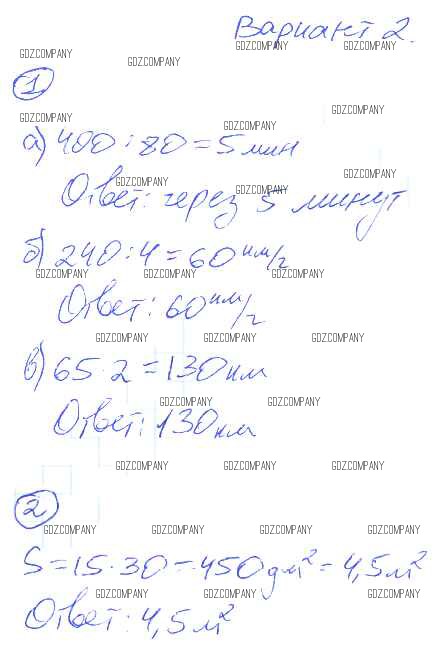 Вариант 2.
GDZCOMPANY GDZCOMPANY GDZCOMPANY
GDZCOMPANY
1
GDZCOMPANY
GDZCOMPANY GDZCOMPANY
а) 400 : 80 = 5 мин
GDZCOMPANY GDZCOMPANY GDZCOMPANY
Ответ: через 5 минут
б) 240 : 4 = 60 км/г
GDZCOMPANY GDZCOMPANY GDZCOMPANY
Ответ: 60 км/г
GDZCOMPANY GDZCOMPANY GDZCOMPANY
в) 65 · 2 = 130 км
GDZCOMPANY GDZCOMPANY
Ответ: 130 км
GDZCOMPANY GDZCOMPANY GDZCOMPANY
2
GDZCOMPANY GDZCOMPANY GDZCOMPANY GDZCOMPANY
S = 15 · 30 = 450 дм² = 4,5 м²
GDZCOMPANY GDZCOMPANY GDZCOMPANY
Ответ: 4,5 м²